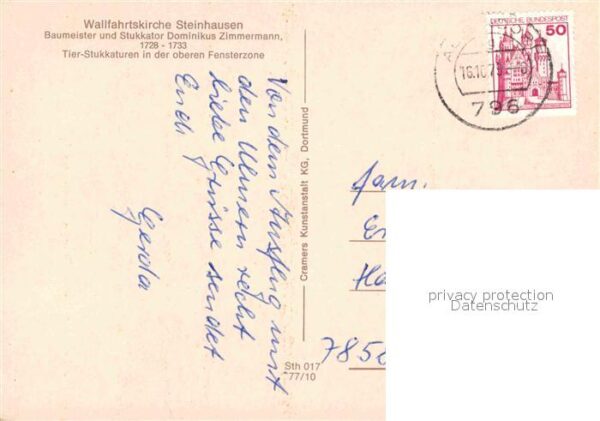 Wallfahrtskirche Steinhausen
Baumeister und Stukkator Dominikus Zimmermann,
1728 - 1733
Tier-Stukkaturen in der oberen Fensterzone
DEUTSCHE BUNDESPOST
50
16.10.79
796
Von dem Ausflug mit
den Ulmern recht
liebe Grüsse sendet
Euch
Gerda
Cramers Kunstanstalt KG, Dortmund
Fam.
785
Sth 017
77/10
privacy protection
Datenschutz